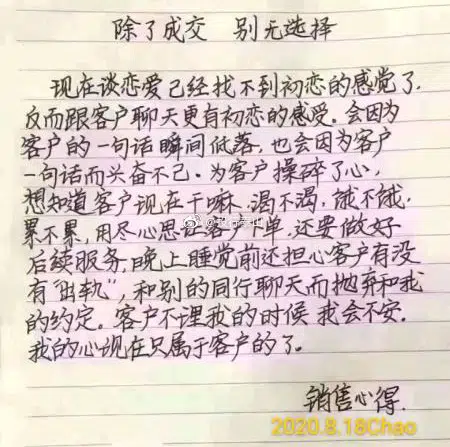 除了成交 别无选择
现在谈恋爱已经找不到初恋的感觉了.
反而跟客户聊天更有初恋的感受。会因为
客户的一句话瞬间低落,也会因为客户
一句话而兴奋不己。为客户操碎了心,
想知道客户现在干嘛,渴不渴,饿不饿,
累不累,用尽心思让客户下单,还要做好
后续服务,晚上睡觉前还担心客户有没
有“出轨”,和别的同行聊天而抛弃和我
的约定。客户不理我的时候 我会不安.
我的心现在只属于客户的了。
销售心得.
2020.8.18Chao